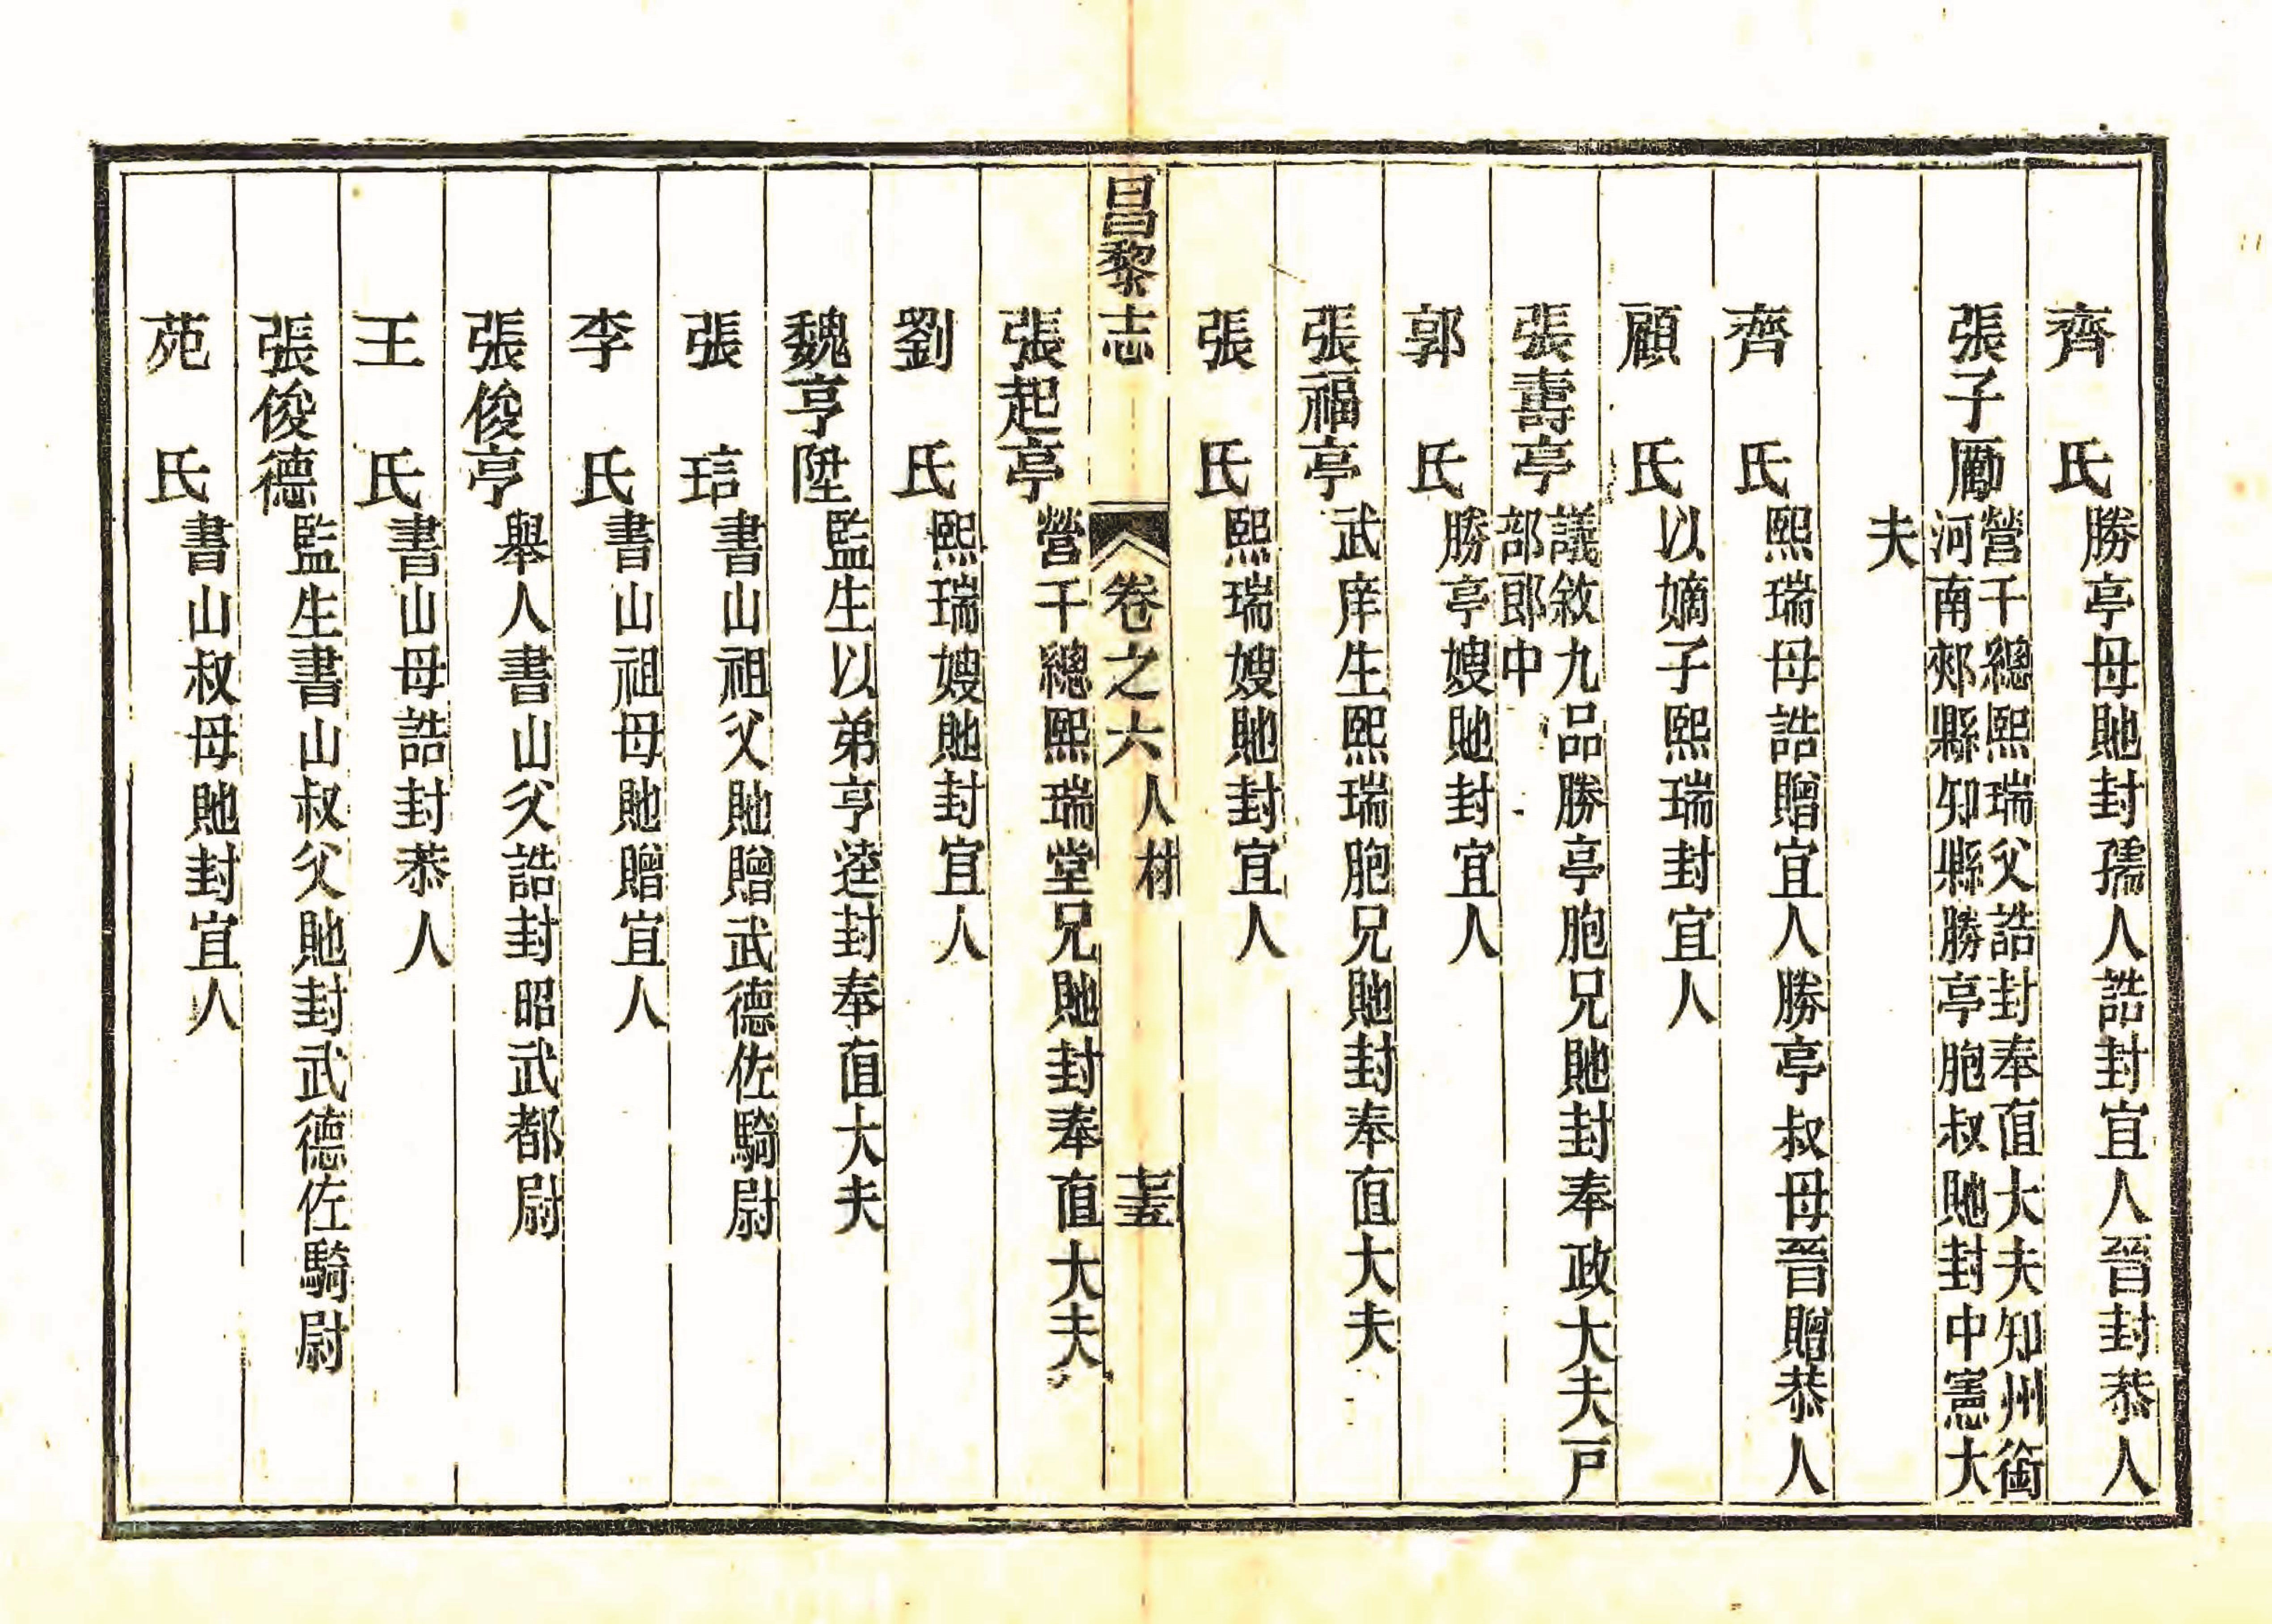 齊　氏勝亭母貤封孺人誥封宜人晉封恭人
張子勵營千總熙瑞父誥封奉直大夫知州銜
河南郟縣知縣勝亭胞叔貤封中憲大
夫
齊　氏熙瑞母誥贈宜人勝亭叔母晉贈恭人
顧　氏以嫡子熙瑞封宜人
張壽亭議敘九品勝亭胞兄貤封奉政大夫戶
部郎中
郭　氏勝亭嫂貤封宜人
張福亭武庠生熙瑞胞兄貤封奉直大夫
張　氏熙瑞嫂貤封宜人
昌黎志　卷之六人材　十五
張起亭營千總熙瑞堂兄貤封奉直大夫
劉　氏熙瑞嫂貤封宜人
魏亨陞監生以弟亨逵封奉直大夫
張　琂書山祖父貤贈武德佐騎尉
李　氏書山祖母貤贈宜人
張俊亨舉人書山父誥封昭武都尉
王　氏書山母誥封恭人
張俊德監生書山叔父貤封武德佐騎尉
苑　氏書山叔母貤封宜人